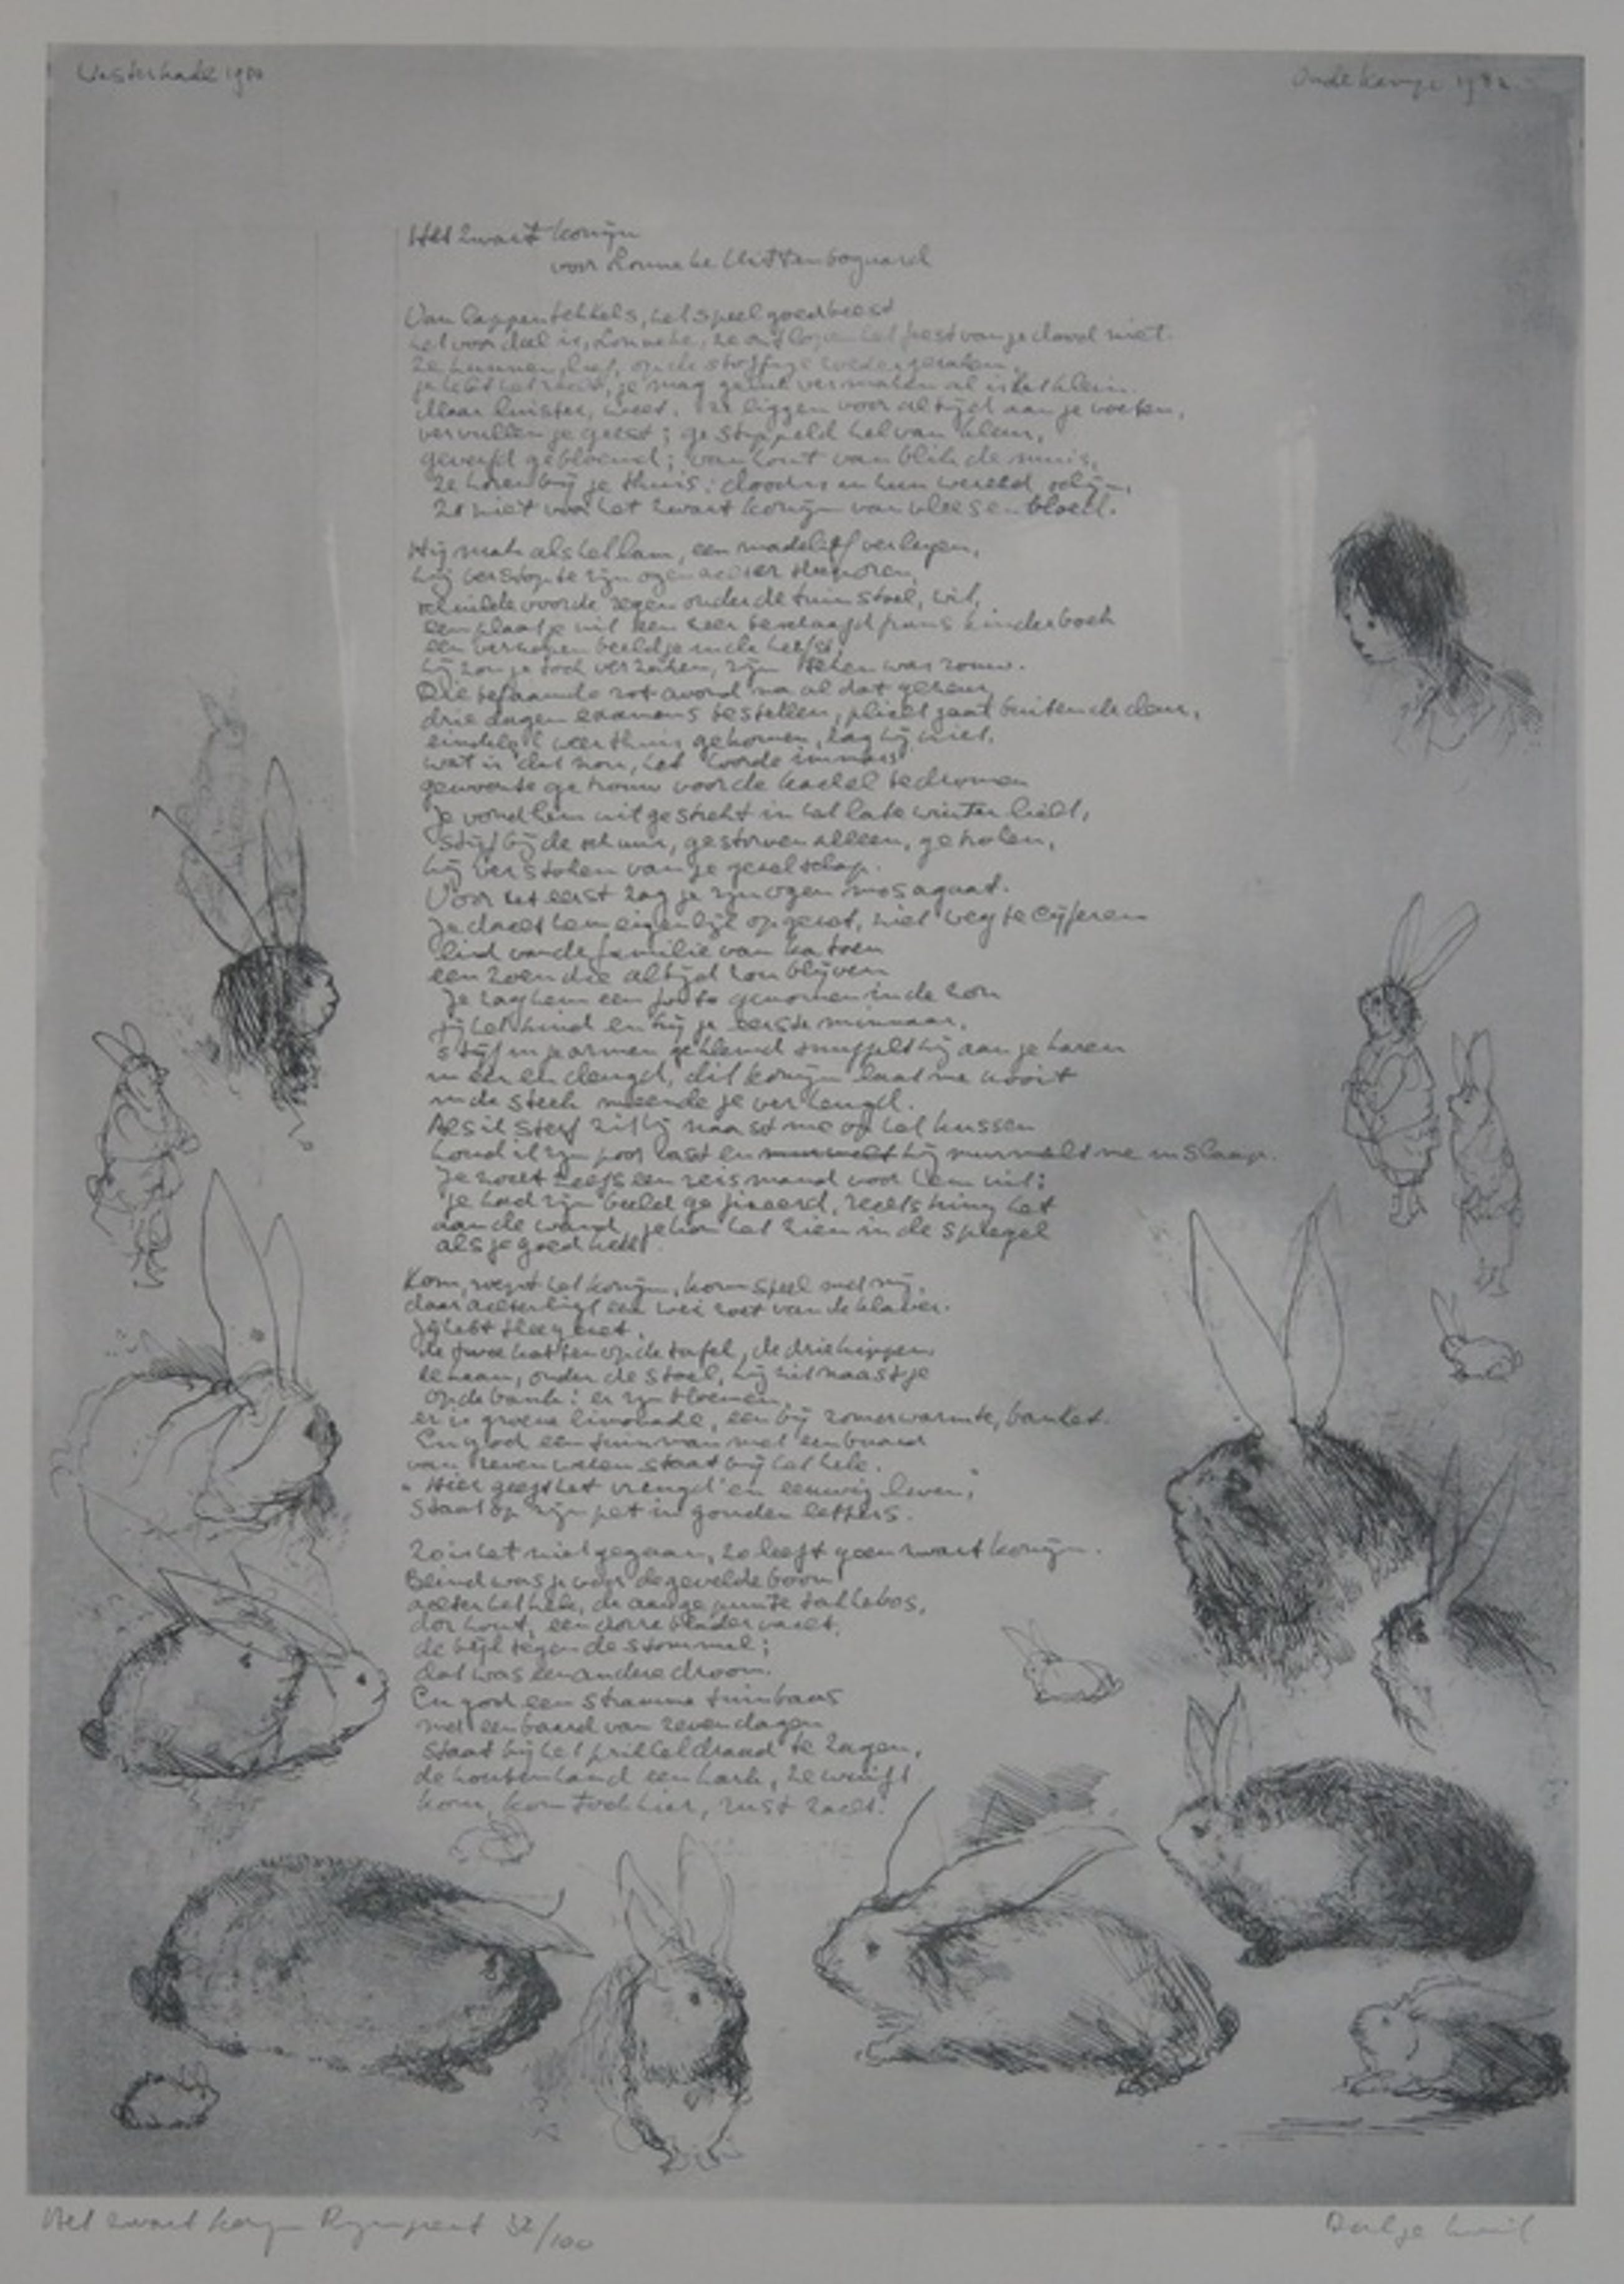 Westerkade 1980
1980
Het zwart konijn
voor Lonneke Uittenbogaard
Van lappen tekkels, het speelgoedbeest
het voordeel is, Lonneke, ze ontlopen het feest van je dood niet.
ze kunnen, lief, op de stoffige zolder geraken,
je hebt het recht, je mag vermaken al is het klein.
Maar luister, weet. ze liggen voor altijd aan je voeten,
vervullen je geest; gestippeld hel van kleur,
geverfd gebloemd; van hout van blik de muis,
ze horen bij je thuis: dood in hun wereld
zo niet voor het zwart konijn van vlees en bloed.
Hij mak als het lam, een madelief verlegen,
hij verstopte zijn ogen achter oren,
schuilde voor de regen onder de tuinstoel, wit,
een plaatje uit een zeer beschaafd frans kinderboek
een beeldje in de herfst;
hij zou je toch verzaken, zijn teken was rouw.
Die befaamde rotavond na al dat gezeur,
drie dagen examens bestellen, plicht gaat buiten de deur,
eindelijk weer thuis gekomen, lag hij niet,
wat is dat nou, het hoorde immers
gewoontegetrouw voor de kachel te dromen
Je vond hem uitgestrekt in het late winterlicht,
stijf bij de schuur, gestorven alleen,
hij verstoken van je gezelschap.
Voor het eerst zag je zijn ogen mosagaat.
Je dacht hem eigenlijk opgezet, niet weg te cijferen
lid van de familie van katoen
een zoen die altijd zou blijven
Je zag hem een foto genomen in de zon
jij het kind en hij je eerste minnaar,
stijf in je armen geklemd snuffelt hij aan je haren
in eer en deugd, dit konijn laat me nooit
in de steek meende je verheugd.
Als ik sterf zit hij naast me op het kussen
houd ik zijn poot vast en hij murmelt me in slaap.
Je zocht zelfs een reismand voor hem uit:
je had zijn beeld gefixeerd, rechts hing het
aan de wand, je kon het zien in de spiegel
als je goed keek.
Kom, roept het konijn, kom speel met mij,
daar achter ligt een wei zoet van de klaver.
Jij hebt
de twee katten op de tafel, de drie kippen
de haan, onder de stoel, hij zit naast je
op de bank: er zijn bloemen,
er is groene limonade, een bij zomerwarmte, banket.
En god een tuinman met een baard
van zeven weken staat bij het hek.
"Hier geeft het vreugd en eeuwig leven,"
staat op zijn pet in gouden letters.
Zo is het niet gegaan, zo leeft geen zwart konijn.
Blind was je voor de gevelde boom
achter het hek, de takkebos,
dor hout, een dorre bladervacht,
de bijl tegen de stommel;
dat was een andere droom.
En god een stramme tuinbaas
met een baard van zeven dagen
staat bij het prikkeldraad te zagen,
de houten hand een hark, ze wuift
kom, kom toch hier, rust zacht.
Het zwart konijn 32/100